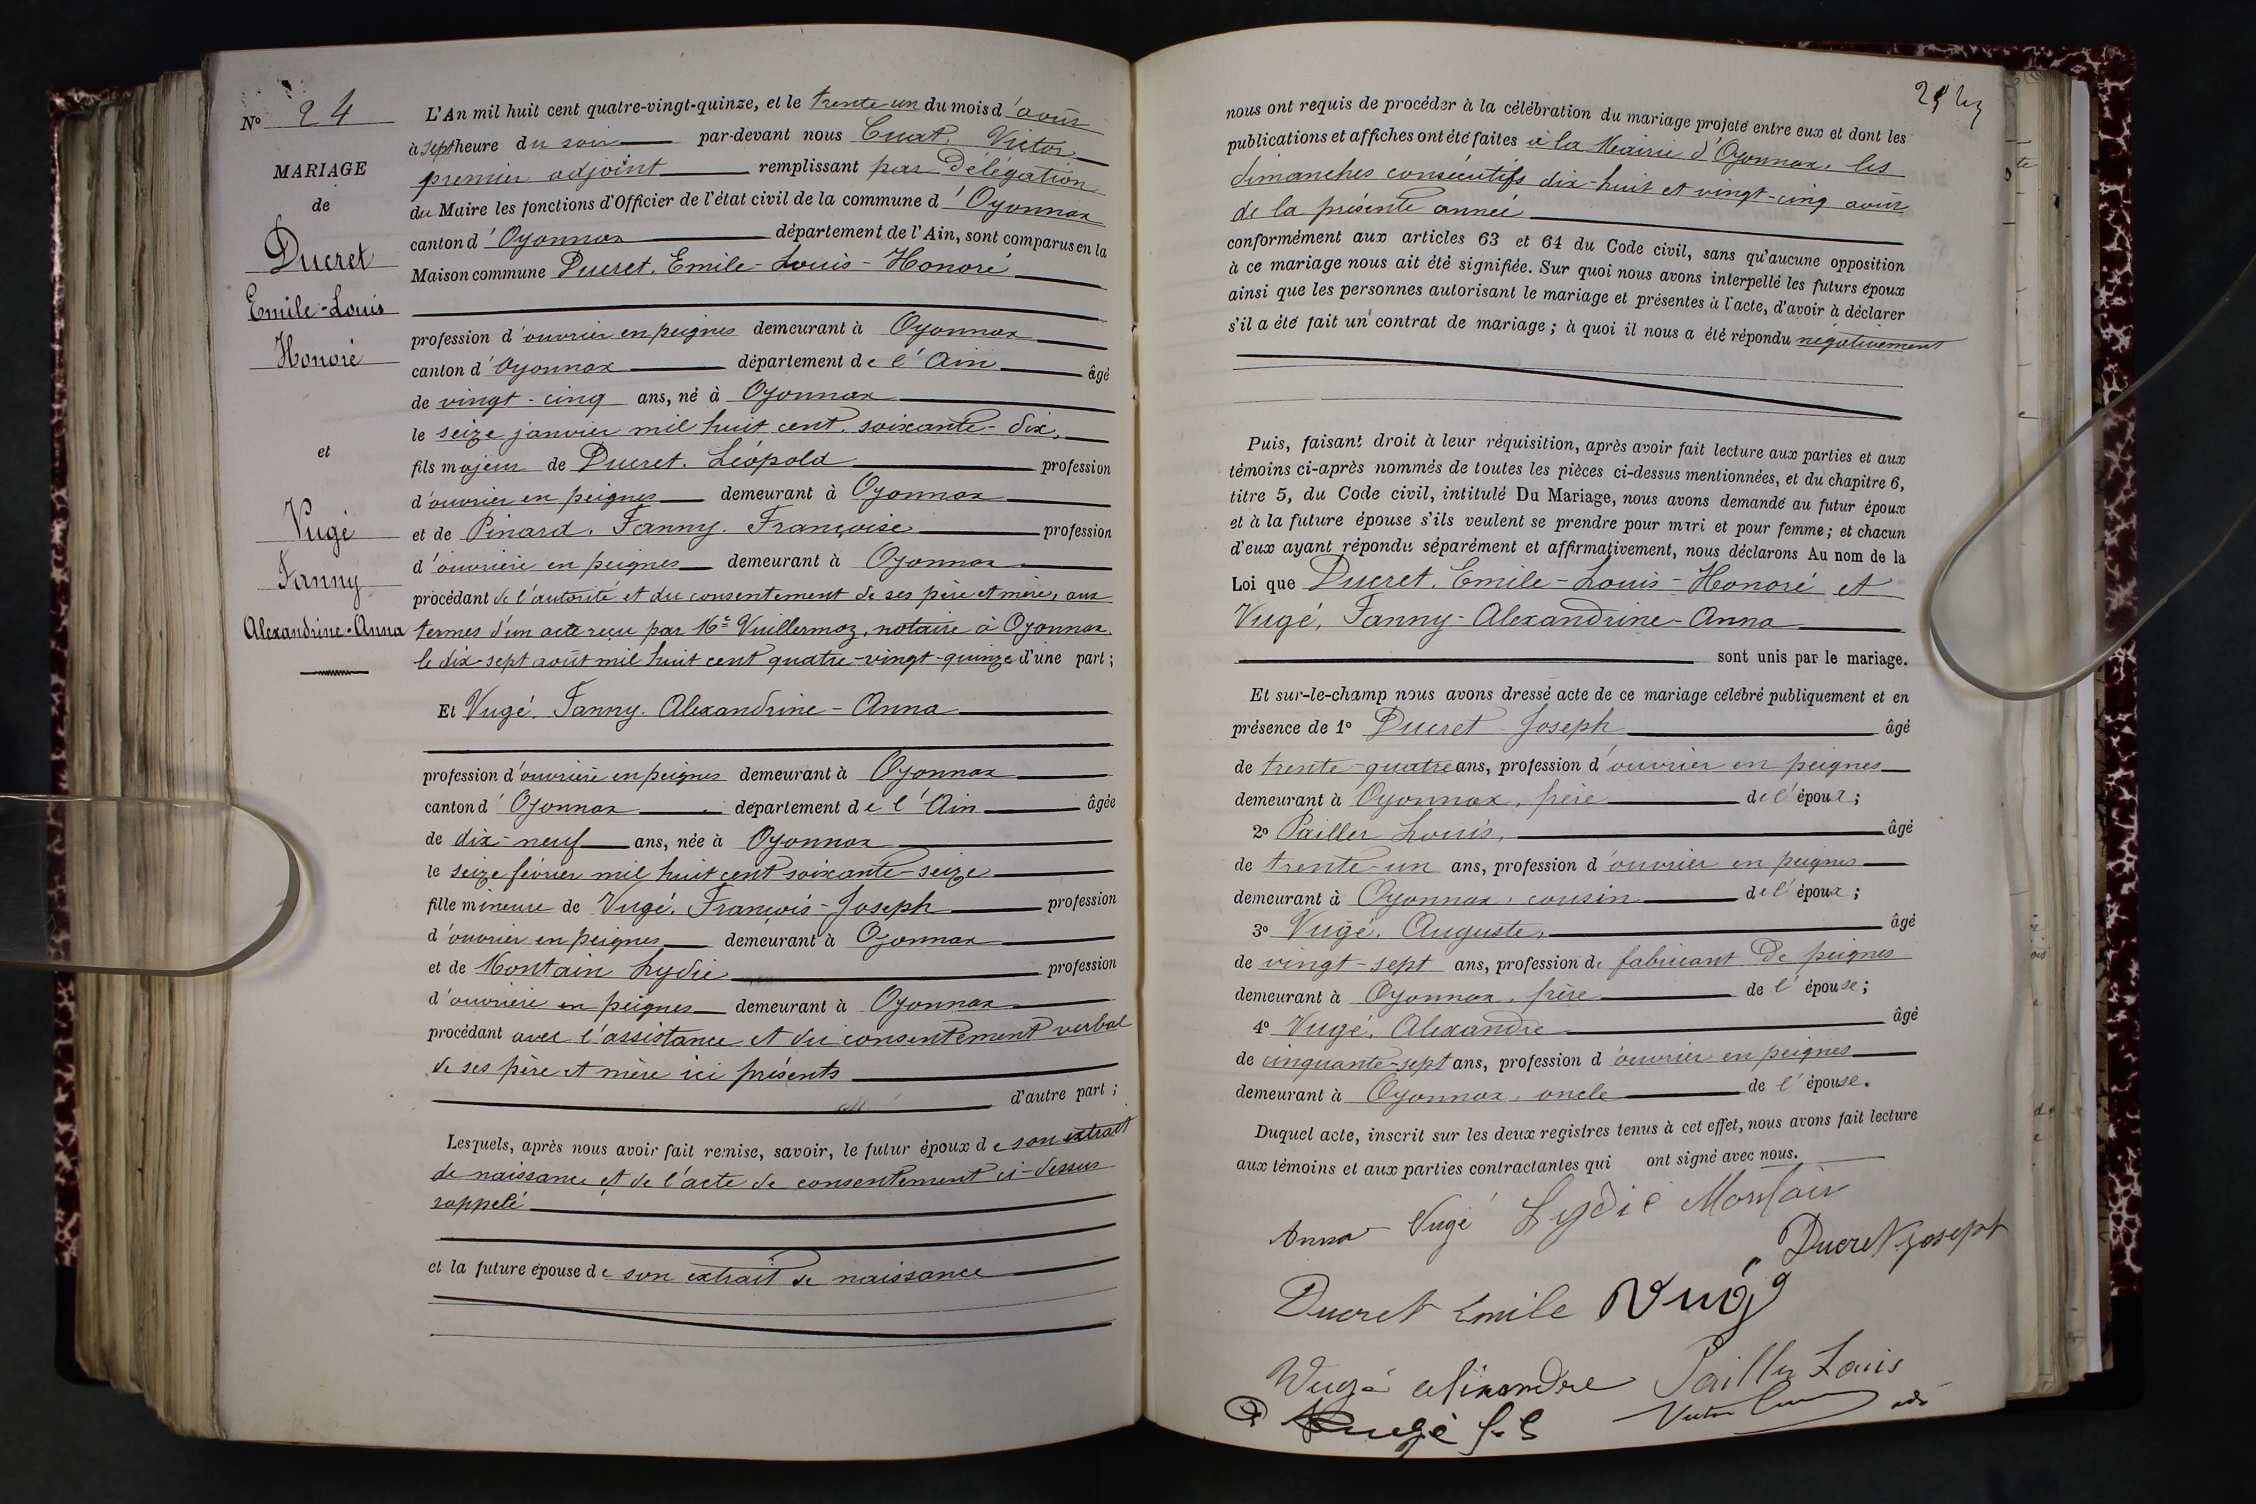 N° 24
MARIAGE
de
Ducret
Emile-Louis
Honoré
et
Vugé
Fanny
Alexandrine-Anna
L'An mil huit cent quatre-vingt-quinze, et le trente un du mois d'août
à sept heure du soir par-devant nous Cuat, Victor
premier adjoint remplissant par Délégation
du Maire les fonctions d'Officier de l'état civil de la commune d'Oyonnax
canton d'Oyonnax département de l'Ain, sont comparus en la
Maison commune Ducret, Emile-Louis-Honoré
profession d'ouvrier en peignes demeurant à Oyonnax
canton d'Oyonnax département de l'Ain âgé
de vingt-cinq ans, né à Oyonnax
le seize janvier mil huit cent soixante-dix,
fils majeur de Ducret, Léopold profession
d'ouvrier en peignes demeurant à Oyonnax
et de Pinard, Fanny, Françoise profession
d'ouvrière en peignes demeurant à Oyonnax
procédant de l'autorité et du consentement de ses père et mère, aux
termes d'un acte reçu par Me Vuillermoz, notaire à Oyonnax,
le dix-sept août mil huit cent quatre-vingt-quinze d'une part;
Et Vugé, Fanny, Alexandrine-Anna
profession d'ouvrière en peignes demeurant à Oyonnax
canton d'Oyonnax département de l'Ain âgée
de dix-neuf ans, née à Oyonnax
le seize février mil huit cent soixante-seize
fille mineure de Vugé, François-Joseph profession
d'ouvrier en peignes demeurant à Oyonnax
et de Montain Lydie profession
d'ouvrière en peignes demeurant à Oyonnax
procédant avec l'assistance et du consentement verbal
de ses père et mère ici présents
d'autre part;
Lesquels, après nous avoir fait remise, savoir, le futur époux de son extrait
de naissance et de l'acte de consentement ci-dessus
rappelé
et la future épouse de son extrait de naissance
nous ont requis de procéder à la célébration du mariage projeté entre eux et dont les
publications et affiches ont été faites à la Mairie d'Oyonnax, les
dimanches consécutifs dix-huit et vingt-cinq août
de la présente année
conformément aux articles 63 et 64 du Code civil, sans qu'aucune opposition
à ce mariage nous ait été signifiée. Sur quoi nous avons interpellé les futurs époux
ainsi que les personnes autorisant le mariage et présentes à l'acte, d'avoir à déclarer
s'il a été fait un contrat de mariage; à quoi il nous a été répondu négativement
Puis, faisant droit à leur réquisition, après avoir fait lecture aux parties et aux
témoins ci-après nommés de toutes les pièces ci-dessus mentionnées, et du chapitre 6,
titre 5, du Code civil, intitulé Du Mariage, nous avons demandé au futur époux
et à la future épouse s'ils veulent se prendre pour mari et pour femme; et chacun
d'eux ayant répondu séparément et affirmativement, nous déclarons Au nom de la
Loi que Ducret, Emile-Louis-Honoré et
Vugé, Fanny-Alexandrine-Anna
sont unis par le mariage.
Et sur-le-champ nous avons dressé acte de ce mariage célébré publiquement et en
présence de 1° Ducret Joseph âgé
de trente-quatre ans, profession d'ouvrier en peignes
demeurant à Oyonnax, frère de l'époux;
2° Pailler Louis, âgé
de trente-un ans, profession d'ouvrier en peignes
demeurant à Oyonnax, cousin de l'époux;
3° Vugé, Auguste, âgé
de vingt-sept ans, profession de fabricant de peignes
demeurant à Oyonnax, frère de l'épouse;
4° Vugé, Alexandre âgé
de cinquante-sept ans, profession d'ouvrier en peignes
demeurant à Oyonnax, oncle de l'épouse.
Duquel acte, inscrit sur les deux registres tenus à cet effet, nous avons fait lecture
aux témoins et aux parties contractantes qui ont signé avec nous.
Anna Vugé Lydie Montain
Ducret Joseph
Ducret Emile Vugé
Vugé alixandre Pailler Louis
Vugé f-s Victor Cuat adt